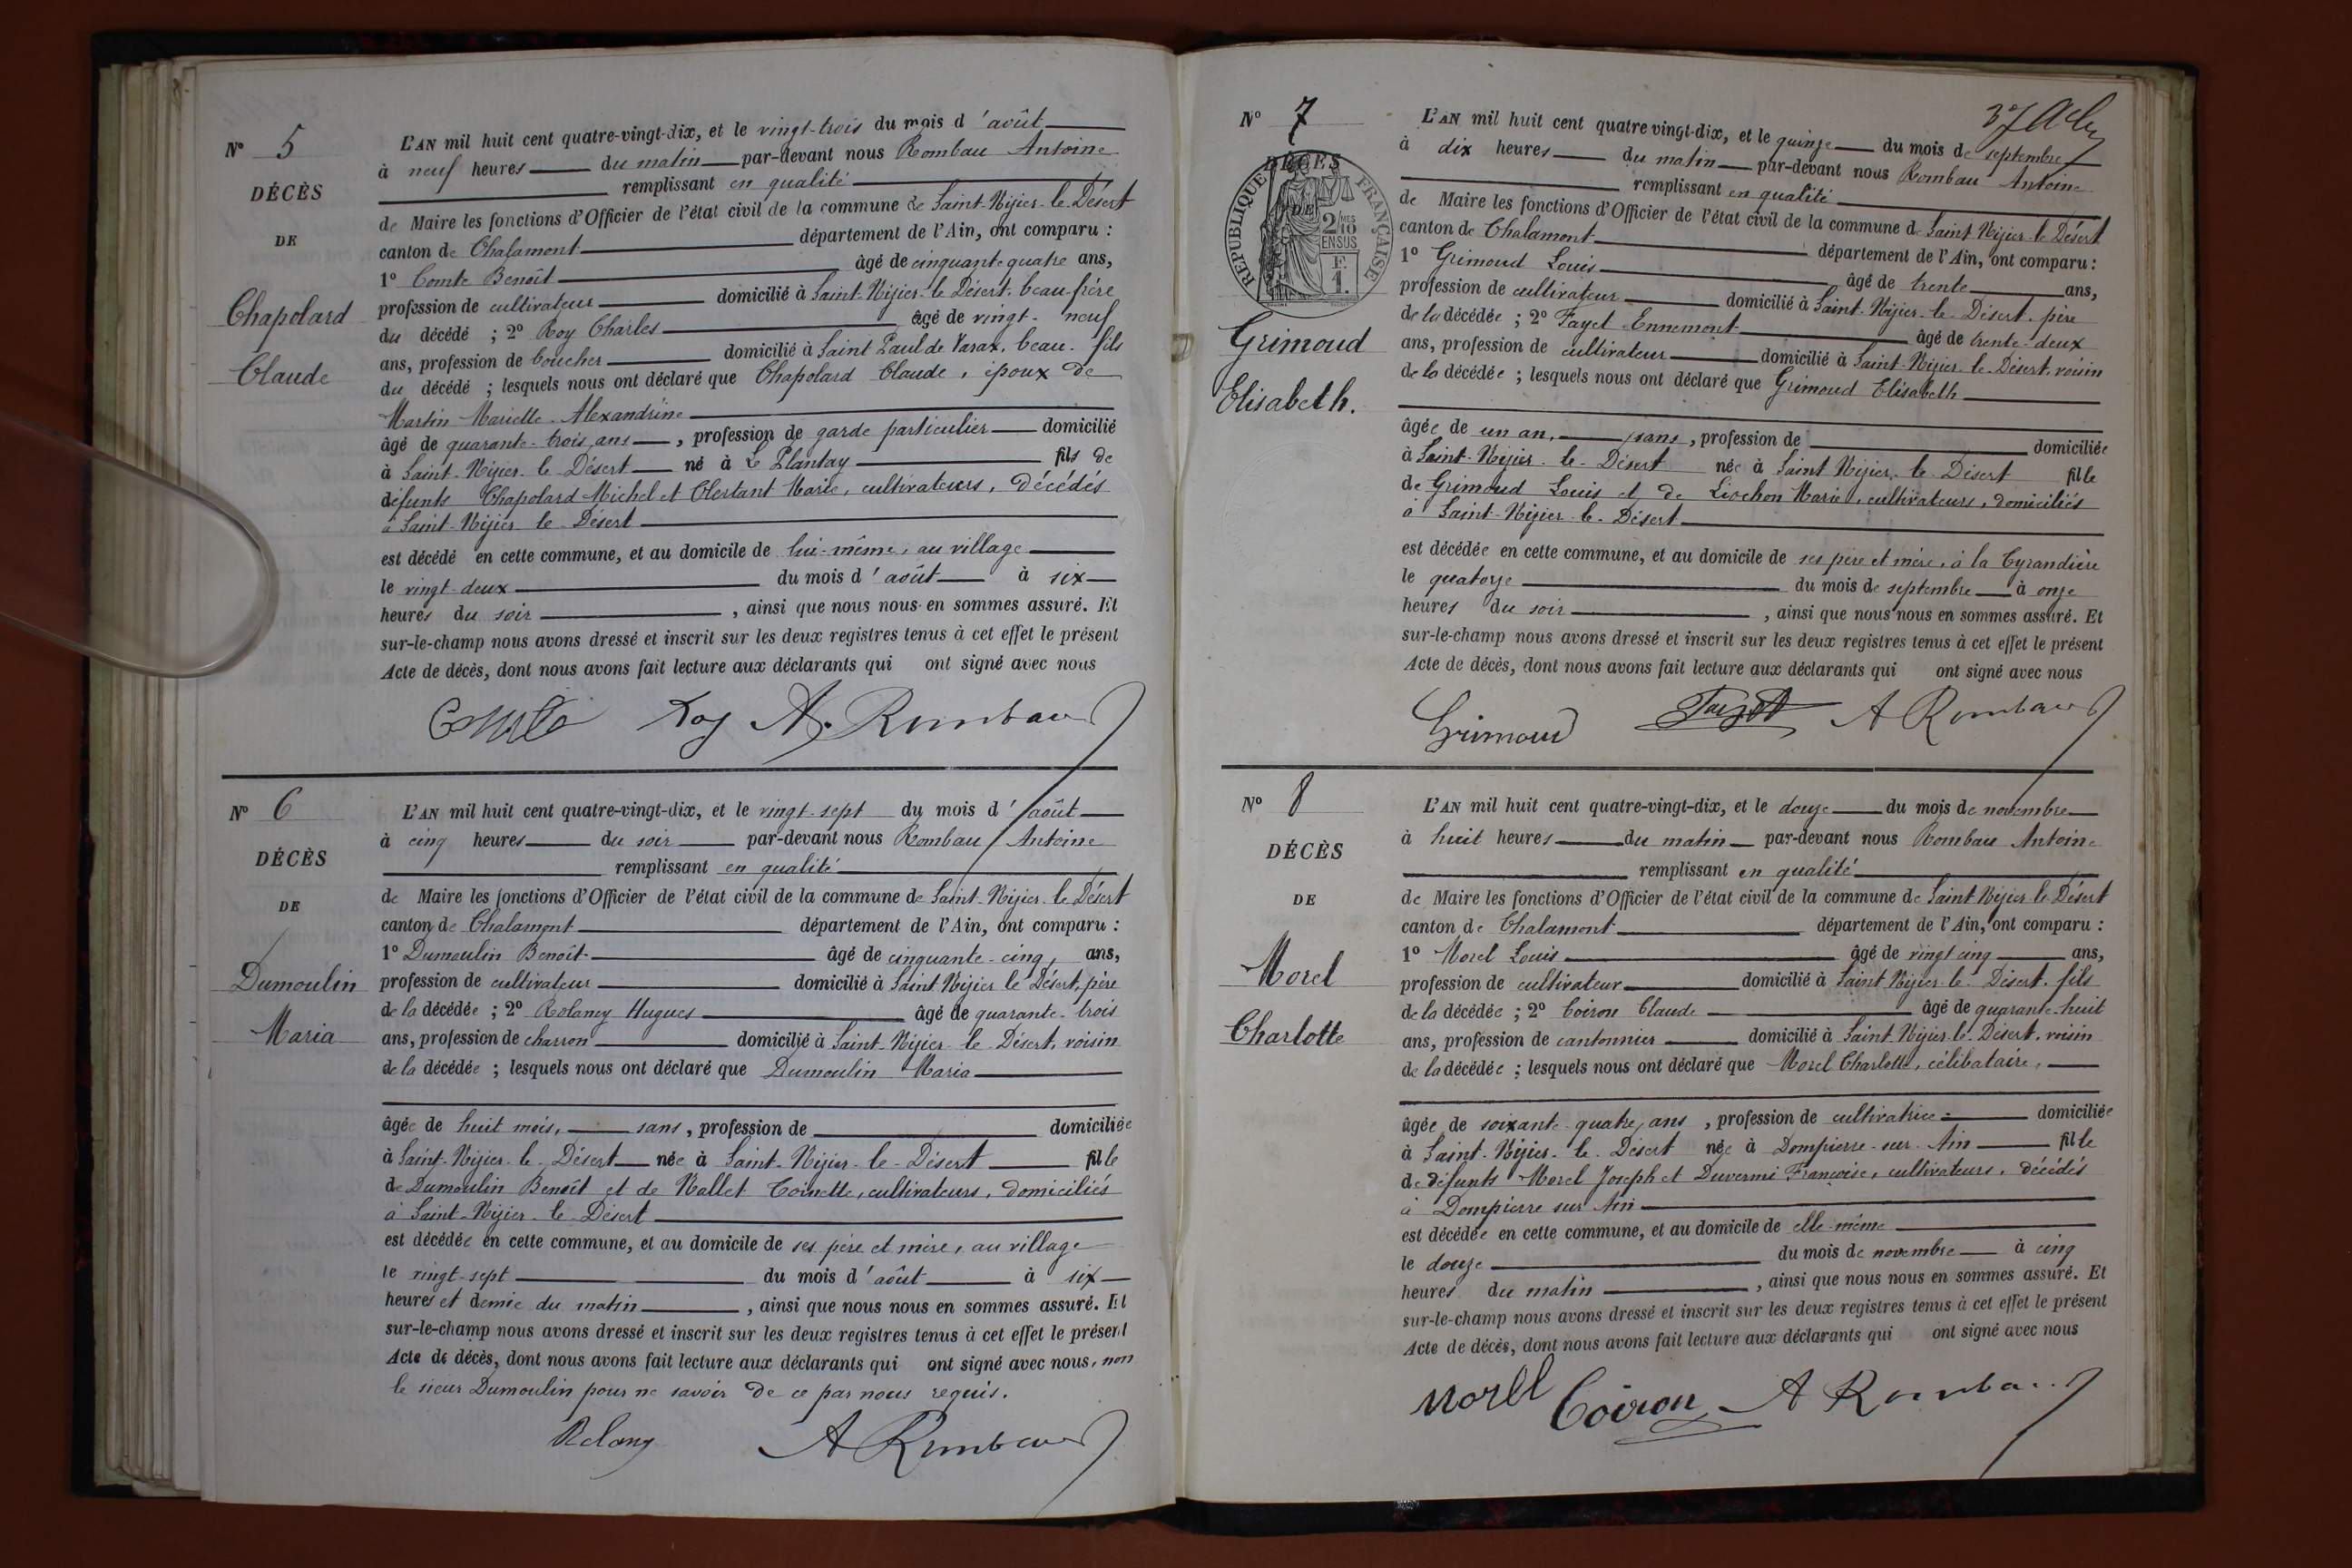 N° 5
DÉCÈS
DE
Chapolard
Claude
L'AN mil huit cent quatre-vingt-dix, et le vingt-trois du mois d'août
à neuf heures du matin par-devant nous Rombau Antoine
remplissant en qualité
de Maire les fonctions d'Officier de l'état civil de la commune de Saint-Nizier-le-Désert
canton de Chalamont département de l'Ain, ont comparu :
1° Comte Benoît âgé de cinquante quatre ans,
profession de cultivateur domicilié à Saint-Nizier-le Désert, beau-frère
du décédé ; 2° Roy Charles âgé de vingt-neuf
ans, profession de boucher domicilié à Saint Paul de Varax, beau-fils
du décédé ; lesquels nous ont déclaré que Chapolard Claude, époux de
Martin Mariette Alexandrine
âgé de quarante-trois ans, profession de garde particulier domicilié
à Saint-Nizier-le-Désert né à Le Plantay fils de
défunts Chapolard Michel et Marie, cultivateurs, décédés
à Saint-Nizier-le-Désert
est décédé en cette commune, et au domicile de lui-même, au village
le vingt-deux du mois d'août à six
heures du soir, ainsi que nous nous en sommes assuré. Et
sur-le-champ nous avons dressé et inscrit sur les deux registres tenus à cet effet le présent
Acte de décès, dont nous avons fait lecture aux déclarants qui ont signé avec nous
Comte Roy A. Rombau
N° 6
DÉCÈS
DE
Dumoulin
Maria
L'AN mil huit cent quatre-vingt-dix, et le vingt-sept du mois d'août
à cinq heures du soir par-devant nous Rombau Antoine
remplissant en qualité
de Maire les fonctions d'Officier de l'état civil de la commune de Saint-Nizier-le-Désert
canton de Chalamont département de l'Ain, ont comparu :
1° Dumoulin Benoît âgé de cinquante-cinq, ans,
profession de cultivateur domicilié à Saint Nizier le Désert, père
de la décédée ; 2° Hugues âgé de quarante-trois
ans, profession de charron domicilié à Saint-Nizier-le-Désert, voisin
de la décédée ; lesquels nous ont déclaré que Dumoulin Maria
âgée de huit mois, sans, profession de domiciliée
à Saint-Nizier-le-Désert née à Saint-Nizier-le-Désert fille
de Dumoulin Benoît et de Nallet Toinette, cultivateurs, domiciliés
à Saint-Nizier-le-Désert
est décédée en cette commune, et au domicile de ses père et mère, au village
le vingt-sept du mois d'août à six
heures et demie du matin, ainsi que nous nous en sommes assuré. Et
sur-le-champ nous avons dressé et inscrit sur les deux registres tenus à cet effet le présent
Acte de décès, dont nous avons fait lecture aux déclarants qui ont signé avec nous, non
le sieur Dumoulin pour ne savoir de ce par nous requis.
A Rombau
37
N° 7
DÉCÈS
DE
RÉPUBLIQUE FRANÇAISE
2/10 MES
EN SUS
F.
1.
Grimoud
Elisabeth.
L'AN mil huit cent quatre vingt-dix, et le quinze du mois de septembre
à dix heures du matin par-devant nous Rombau Antoine
remplissant en qualité
de Maire les fonctions d'Officier de l'état civil de la commune de Saint Nizier-le-Désert
canton de Chalamont département de l'Ain, ont comparu :
1° Grimoud Louis âgé de trente ans,
profession de cultivateur domicilié à Saint-Nizier-le-Désert, père
de la décédée ; 2° Fayet Ennemont âgé de trente-deux
ans, profession de cultivateur domicilié à Saint-Nizier-le-Désert, voisin
de la décédée ; lesquels nous ont déclaré que Grimoud Elisabeth
âgée de un an, sans, profession de domiciliée
à Saint-Nizier-le-Désert née à Saint Nizier-le-Désert fille
de Grimoud Louis et de Liochon Marie, cultivateurs, domiciliés
à Saint-Nizier-le-Désert
est décédée en cette commune, et au domicile de ses père et mère, à la Tyrandière
le quatorze du mois de septembre à onze
heures du soir, ainsi que nous nous en sommes assuré. Et
sur-le-champ nous avons dressé et inscrit sur les deux registres tenus à cet effet le présent
Acte de décès, dont nous avons fait lecture aux déclarants qui ont signé avec nous
Grimoud Fayet A Rombau
N° 8
DÉCÈS
DE
Morel
Charlotte
L'AN mil huit cent quatre-vingt-dix, et le douze du mois de novembre
à huit heures du matin par-devant nous Rombau Antoine
remplissant en qualité
de Maire les fonctions d'Officier de l'état civil de la commune de Saint Nizier le Désert
canton de Chalamont département de l'Ain, ont comparu :
1° Morel Louis âgé de vingt cinq ans,
profession de cultivateur domicilié à Saint Nizier-le-Désert, fils
de la décédée ; 2° Coiron Claude âgé de quarante-huit
ans, profession de cantonnier domicilié à Saint-Nizier-le-Désert, voisin
de la décédée ; lesquels nous ont déclaré que Morel Charlotte, célibataire,
âgée de soixante-quatre, ans, profession de cultivatrice domiciliée
à Saint-Nizier-le-Désert née à Dompierre-sur-Ain fille
de défunts Morel Joseph et Françoise, cultivateurs, décédés
à Dompierre sur Ain
est décédée en cette commune, et au domicile de elle-même
le douze du mois de novembre à cinq
heures du matin, ainsi que nous nous en sommes assuré. Et
sur-le-champ nous avons dressé et inscrit sur les deux registres tenus à cet effet le présent
Acte de décès, dont nous avons fait lecture aux déclarants qui ont signé avec nous
Morel Coiron A Rombau